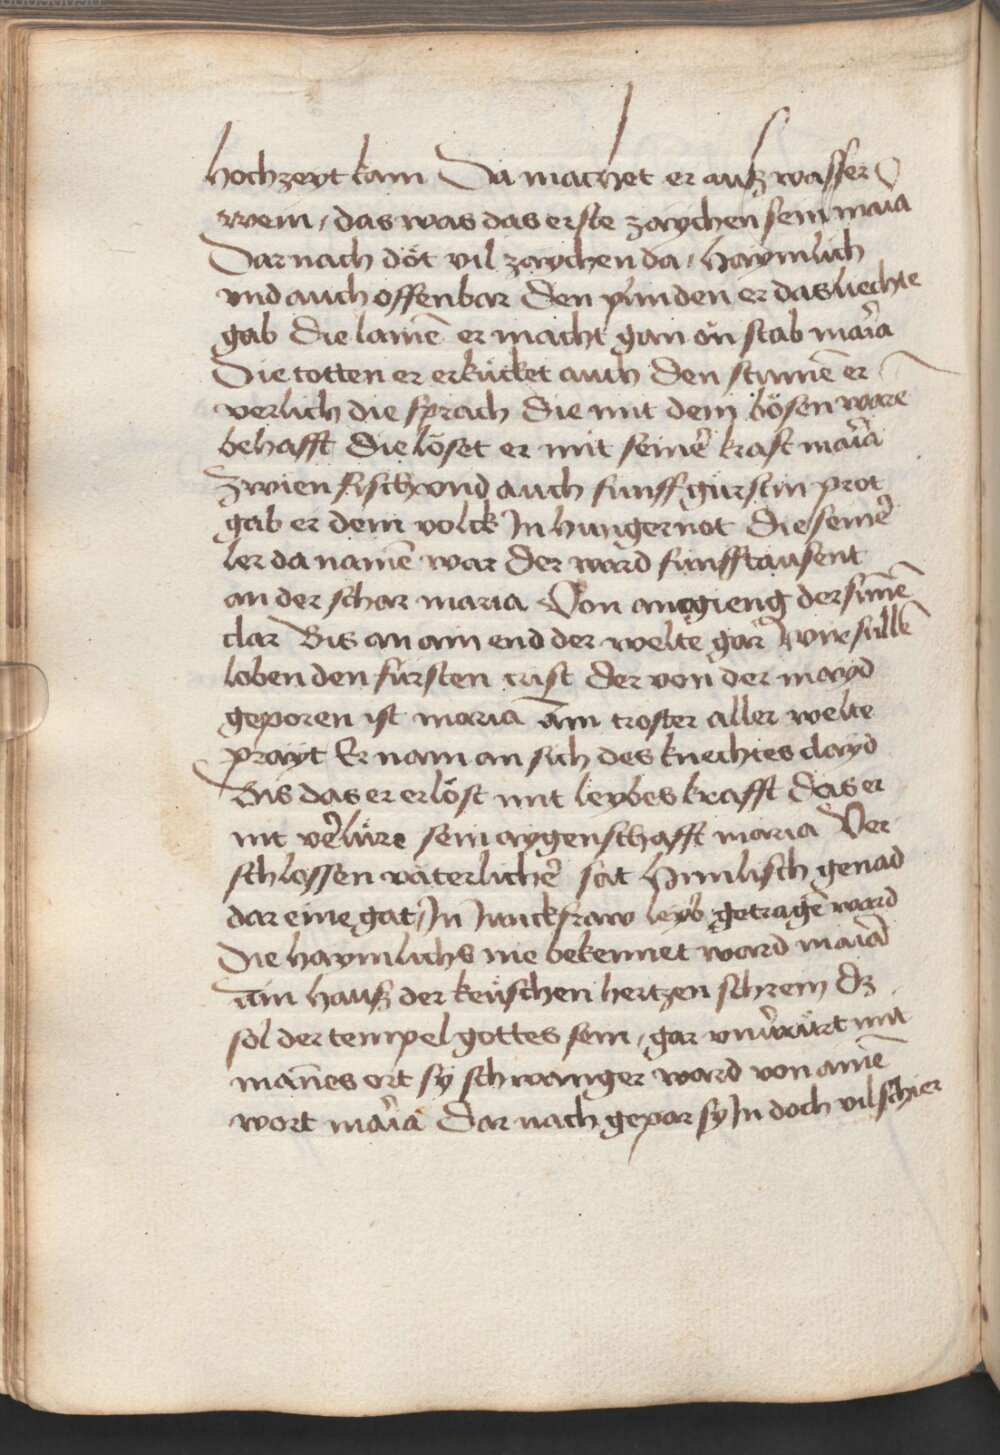 hochzeyt kam Da machet er auß wasser
wein / das was das erste zaychen sein maria
Dar nach döt vil zaychen da / haymlich
vnd auch offenbar Den plinden er das liechte
gab Die lamē er macht gan ön stab maria
Die totten er erkücket auch Den stumē er
verlich die sprach Die mit dem bösen ware
behafft Die löset er mit seiner kraft maria
Zwien fisch vnd auch funff gürstin prot
gab er dem volck In hunger not Die seiner
ler da namē war Der ward funfftausent
an der schar maria Von anegieng der sunnē
clar Bis an ain end der welte gar Wir sullē
loben den fürsten crist Der von der mayd
geporen ist maria Ain troster aller welte
prayt Er nam an sich des knechtes clayd
Bis das er erlöst mit leybes krafft Das er
nit verlüre sein aygenschafft maria Ver
schlossen väterlicher sat himlisch genad
dar eine gat / In Junckfraw leyb getragē ward
Die haymlichs nie bekennet ward maria
Ain hauß der keuschen hertzen schrein Dz
sol der tempel gottes sein / gar vnuerrürt mit
mannes ort sy schwanger ward von ainē
wort maria Dar nach gepar sy In doch vil schier